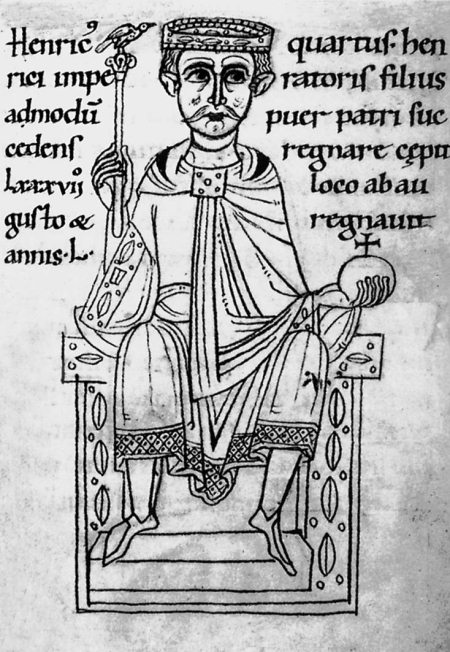 Henricꝰ quartus. hen
rici impe ratoris filius
admodū puer patri suc
cedens regnare cępit
lxxxvijᵒ loco ab au
gusto & regnauit
annis · L ·